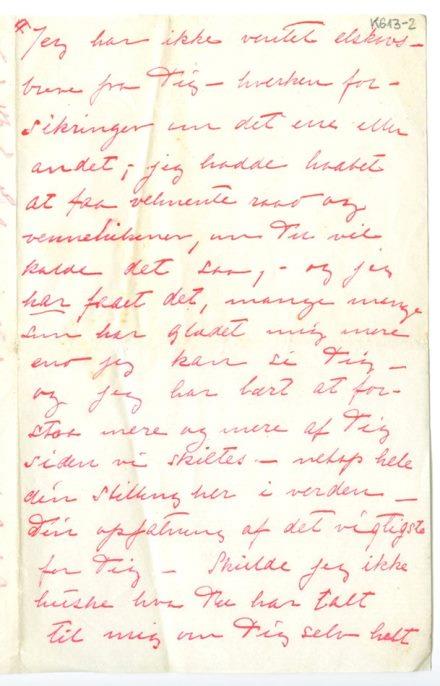 K613-2
Jeg har ikke ventet elskovs-
breve fra Dig – hverken for-
sikringer om det ene eller
andet, – jeg hadde haabet
at faa velmente raad og
vennehilsener, om Du vil
kalde det saa, – og jeg
har faaet det, mange mange
som har glædet mig mere
end jeg kan si Dig –
og jeg har lært at for-
staa mere og mere af Dig
siden vi skiltes – netop hele
din stilling her i verden –
Din opfatning af det vigtigste
for Dig – Skulde jeg ikke
huske hva Du har talt
til mig om Dig selv helt